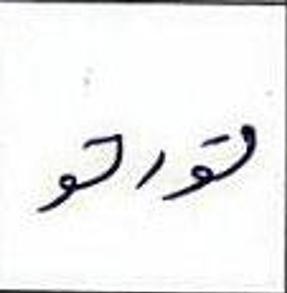 تورتو